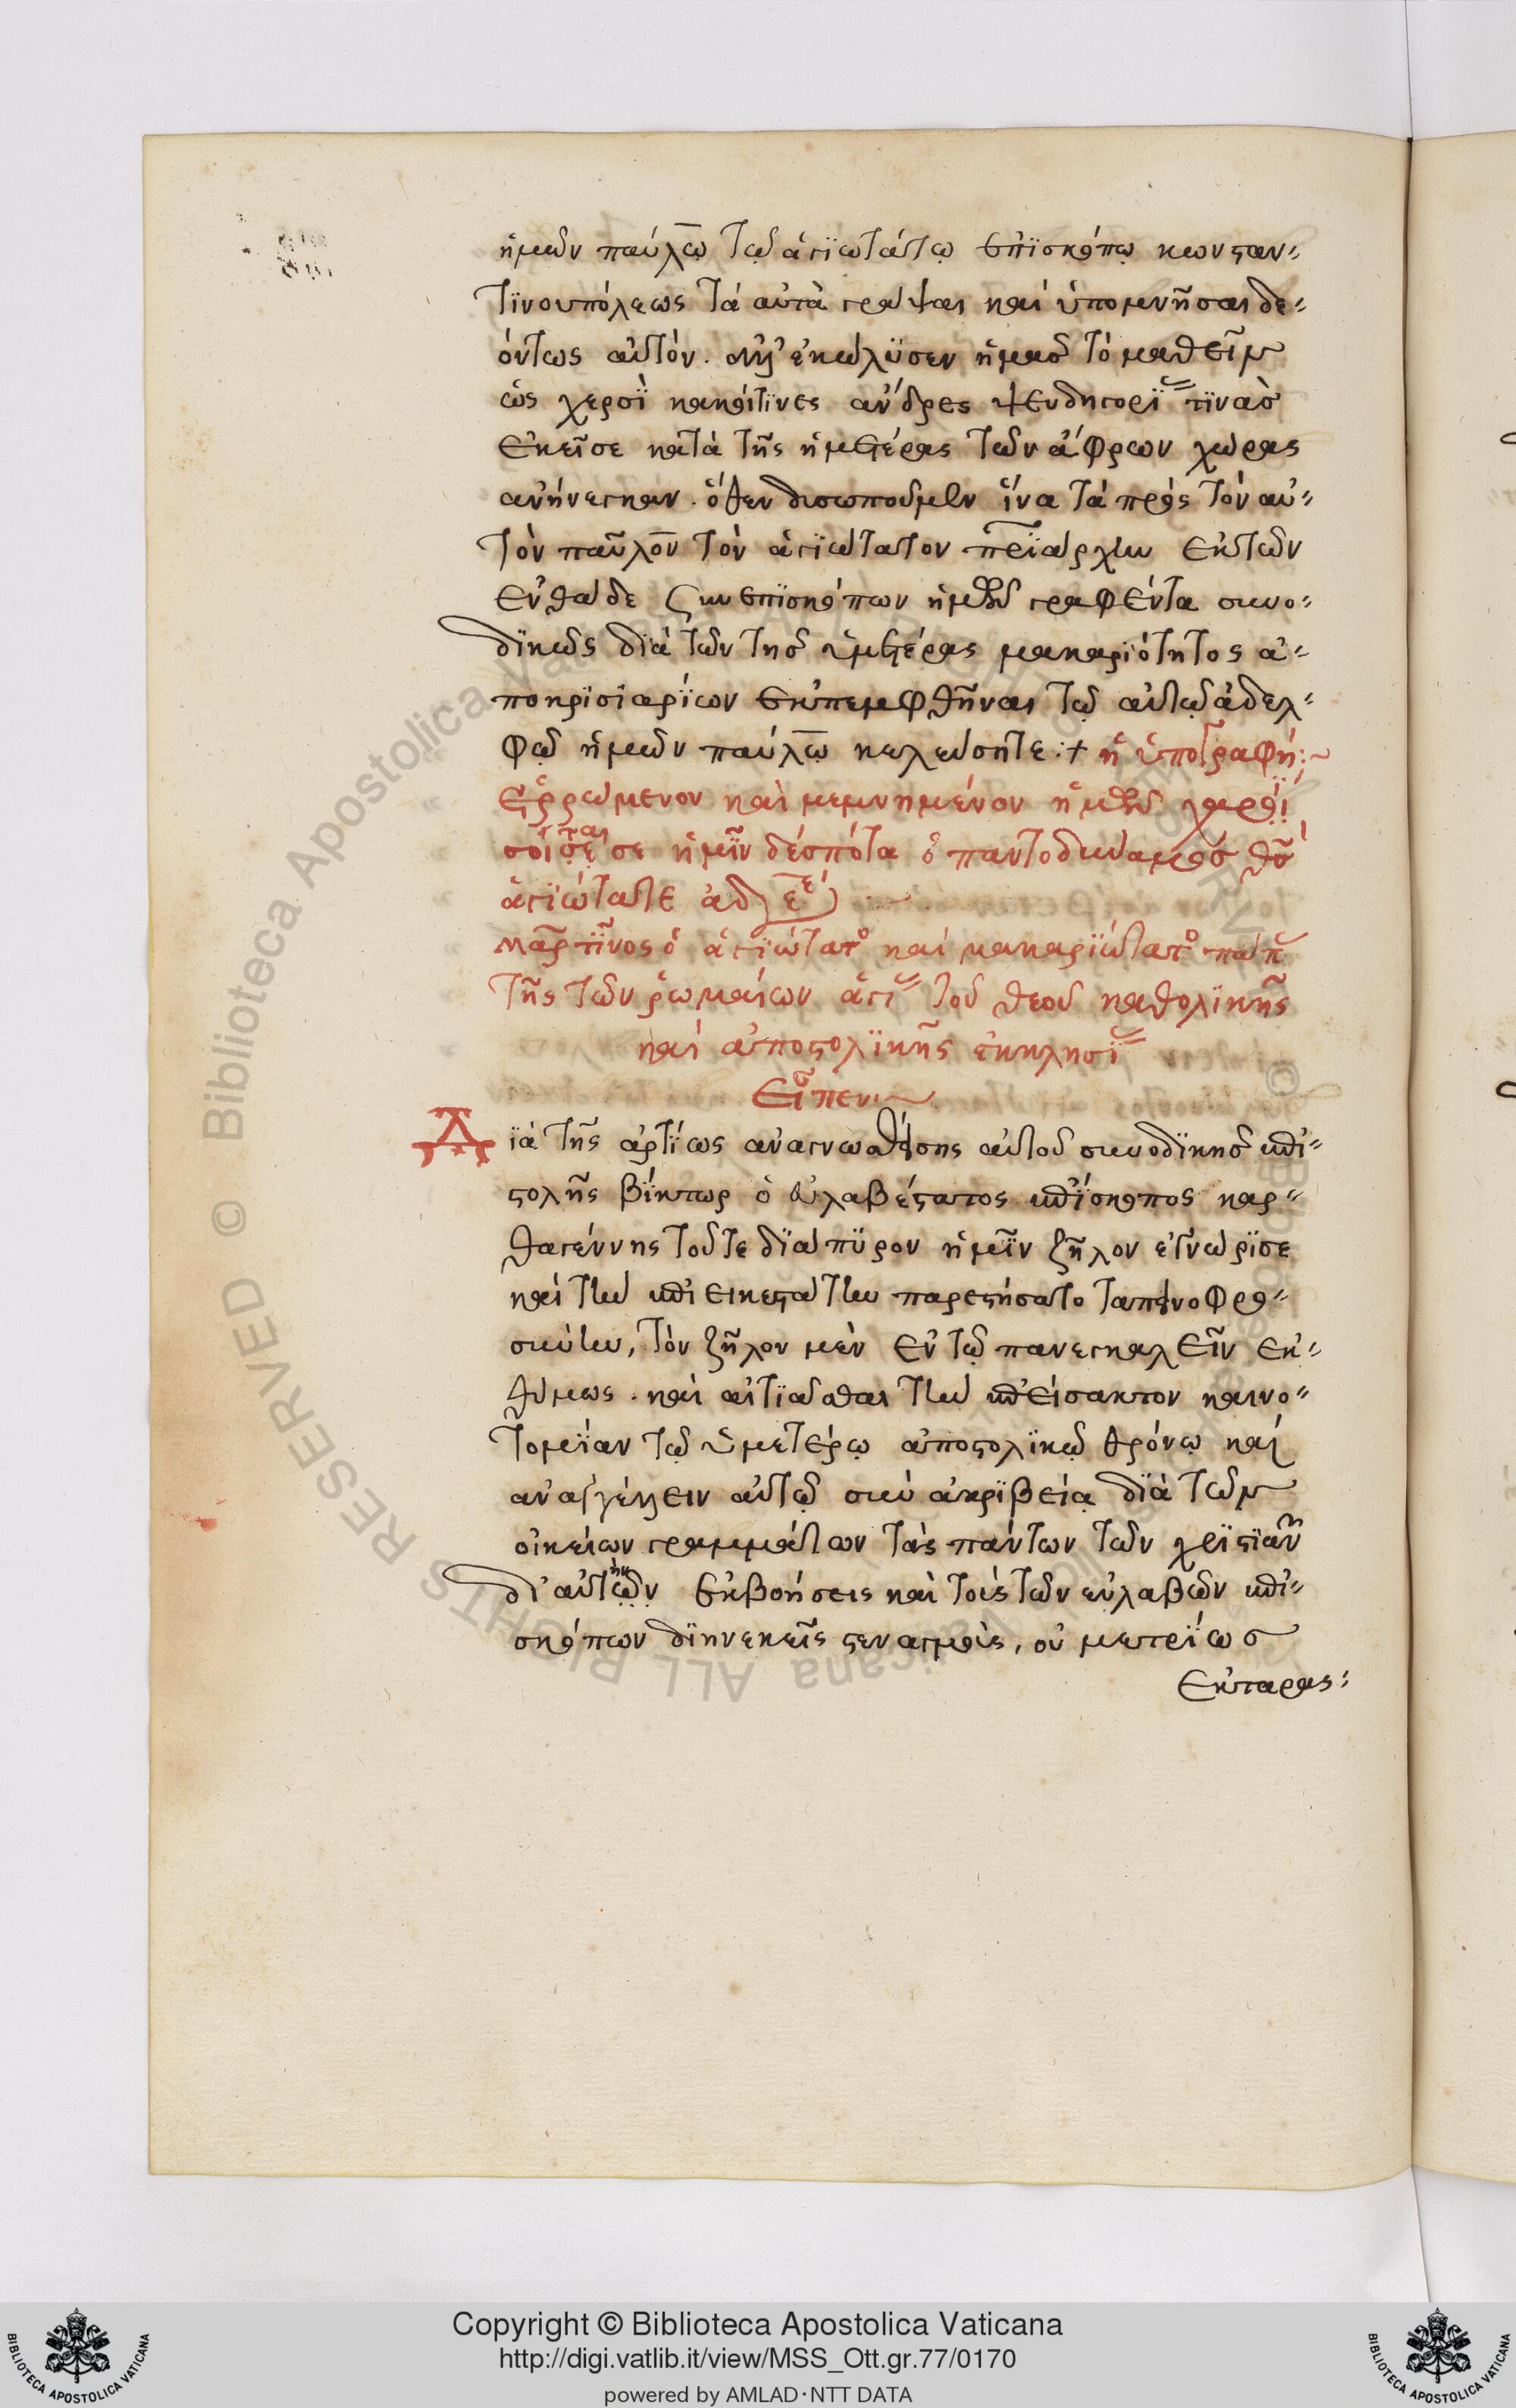 ἡμῶν παύλω τῷ ἁγϊωτάτῳ ἐπϊσκόπῳ κωνσταν-
τϊνουπόλεως τὰ αὐτὰ γράψαι καὶ ὑπομνῆσαι δε-
όντως αὐτόν. ἀλλ' ἐκώλϋσεν ἡμᾶς τὸ μαθεῖν
ὡς χερσϊ κακοίτϊνες ἄνδρες ψευδηγορί τϊνὰς
ἐκεῖσε κατὰ τῆς ἡμετέρας τῶν ἄφρων χώρας
ἀνήνεγκαν. ὅθεν δυσωποῦμεν ἵνα τὰ πρὸς τὸν αὐ-
τὸν παῦλον τὸν ἁγϊώτατον πρϊάρχην ἐκ τῶν
ἐνθάδε συνεπϊσκόπων ἡμῶν γραφέντα συνο-
δϊκῶς δϊὰ τῶν τῆς ὑμετέρας μακαρϊότητος ἀ-
ποκρϊσϊαρΐων ἐκπεμφθῆναι τῷ αὐτῷ ἀδελ-
φῷ ἡμῶν παύλω κελεύσητε :+ ἡ ὑπογραφή:
Ἐρρωμενον καὶ μεμνημένον ἡμῶν χαρϊ
σοιται σε ἡμῖν δέσποτα ὁ παντοδύναμος θς
ἁγϊώτατε ἀδελφέ
μαρτῖνος ὁ ἁγϊώτατο καὶ μακαρϊώτατο πάπ
τῆς τῶν ῥωμαίων ἁγϊ τοῦ θεοῦ καθολϊκῆς
καὶ ἀποστολϊκῆς ἐκκλησϊ
Εἶπεν:
Δϊὰ τῆς ἀρτΐως ἀναγνωσθείσης αὐτοῦ συνοδϊκῆς ἐπι-
στολῆς βΐκτωρ ὁ εὐλαβέστατος ἐπΐσκοπος καρ-
θαγέννης τοῦτε δϊάπϋρον ἡμῖν ζῆλον ἐγνώρϊσε
καὶ τὴν ἐπιεικεστάτην παρεστήσατο ταπεινοφρο-
σύνην, τὸν ζῆλον μὲν ἐν τῷ πανεγκαλεῖν ἐκ-
θύμως. καὶ αἰτϊᾶσθαι τὴν ἐπείσακτον καινο-
τομΐαν τῷ ὑμετέρῳ ἀποστολϊκῷ θρόνῳ καὶ
ἀναγγέλλειν αὐτῷ σὺν ἀκρϊβείᾳ δϊὰ τῶν
οἰκείων γραμμάτων τὰς πάντων τῶν χρϊστϊαν
δι' αὐτὴν ἐκβοήσεις καὶ τοὺς τῶν εὐλαβῶν ἐπι-
σκόπων δϊηνεκεῖς στεναγμοὺς, οὐ μετρΐως
ἐκταρας:
Copyright © Biblioteca Apostolica Vaticana
http://digi.vatlib.it/view/MSS_Ott.gr.77/0170
powered by AMLAD·NTT DATA